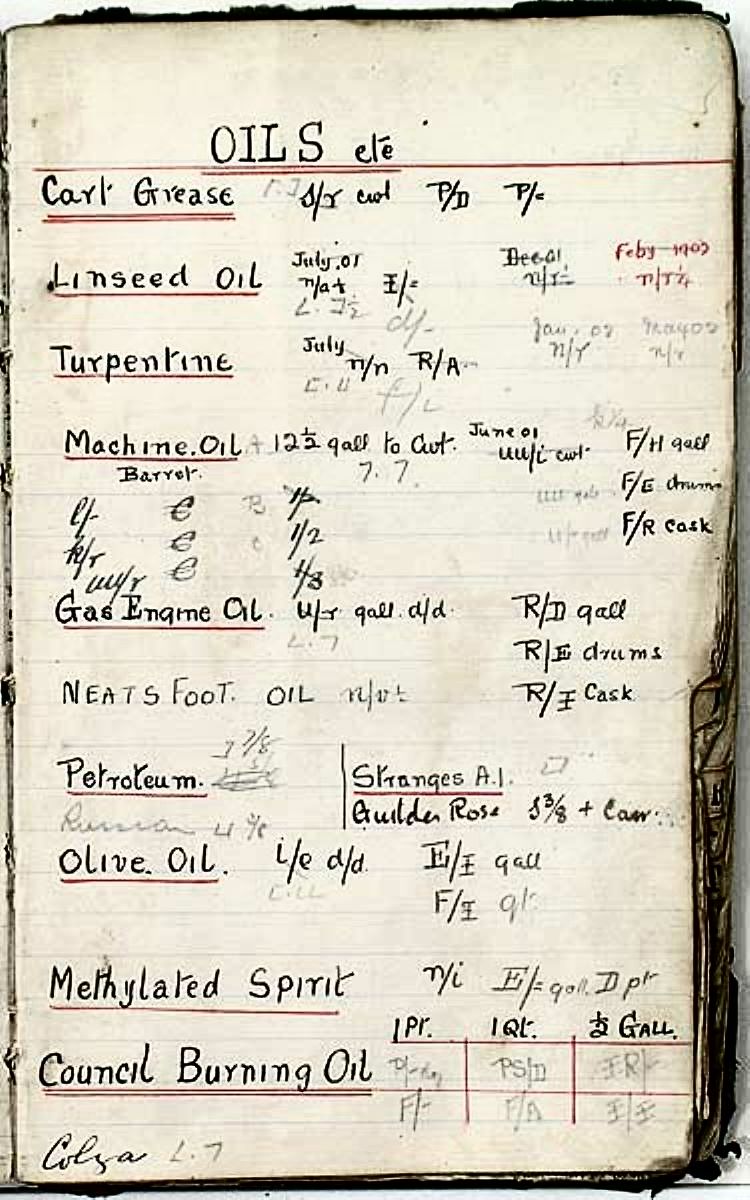 OILS etc
Cart Grease S/r cwt P/D P/=
July.01 Dec 01 Feby 1902
Linseed Oil n/a+ I/= n/r½
d/-
Jan. 02 May 02
Turpentine July n/n R/A n/r n/r
L.4
Machine.Oil 12½ gall to Cwt. June 01 uu/i cwt F/H gall
Barrel. 7.7. F/E drums
l/- € B 1/-
F/R cask
k/r € C 1/2
uu/r € 1/3
Gas Engine Oil. u/r gall. d/d. R/D gall
L.7
R/E drums
NEATSFOOT. OIL R/I Cask
7 7/8
Petroleum. Stranges A.1.
Guilder Rose S3/8 + Carr.
Russian 4 7/8
Olive. Oil. i/e d/d. E/I gall
L.LL F/I qt.
Methylated Spirit n/i E/= gall. D pt
1 Pt. 1 Qt. ½ GALL.
Council Burning Oil PS/D I R/-
F/- F/A I/I
Colza L.7